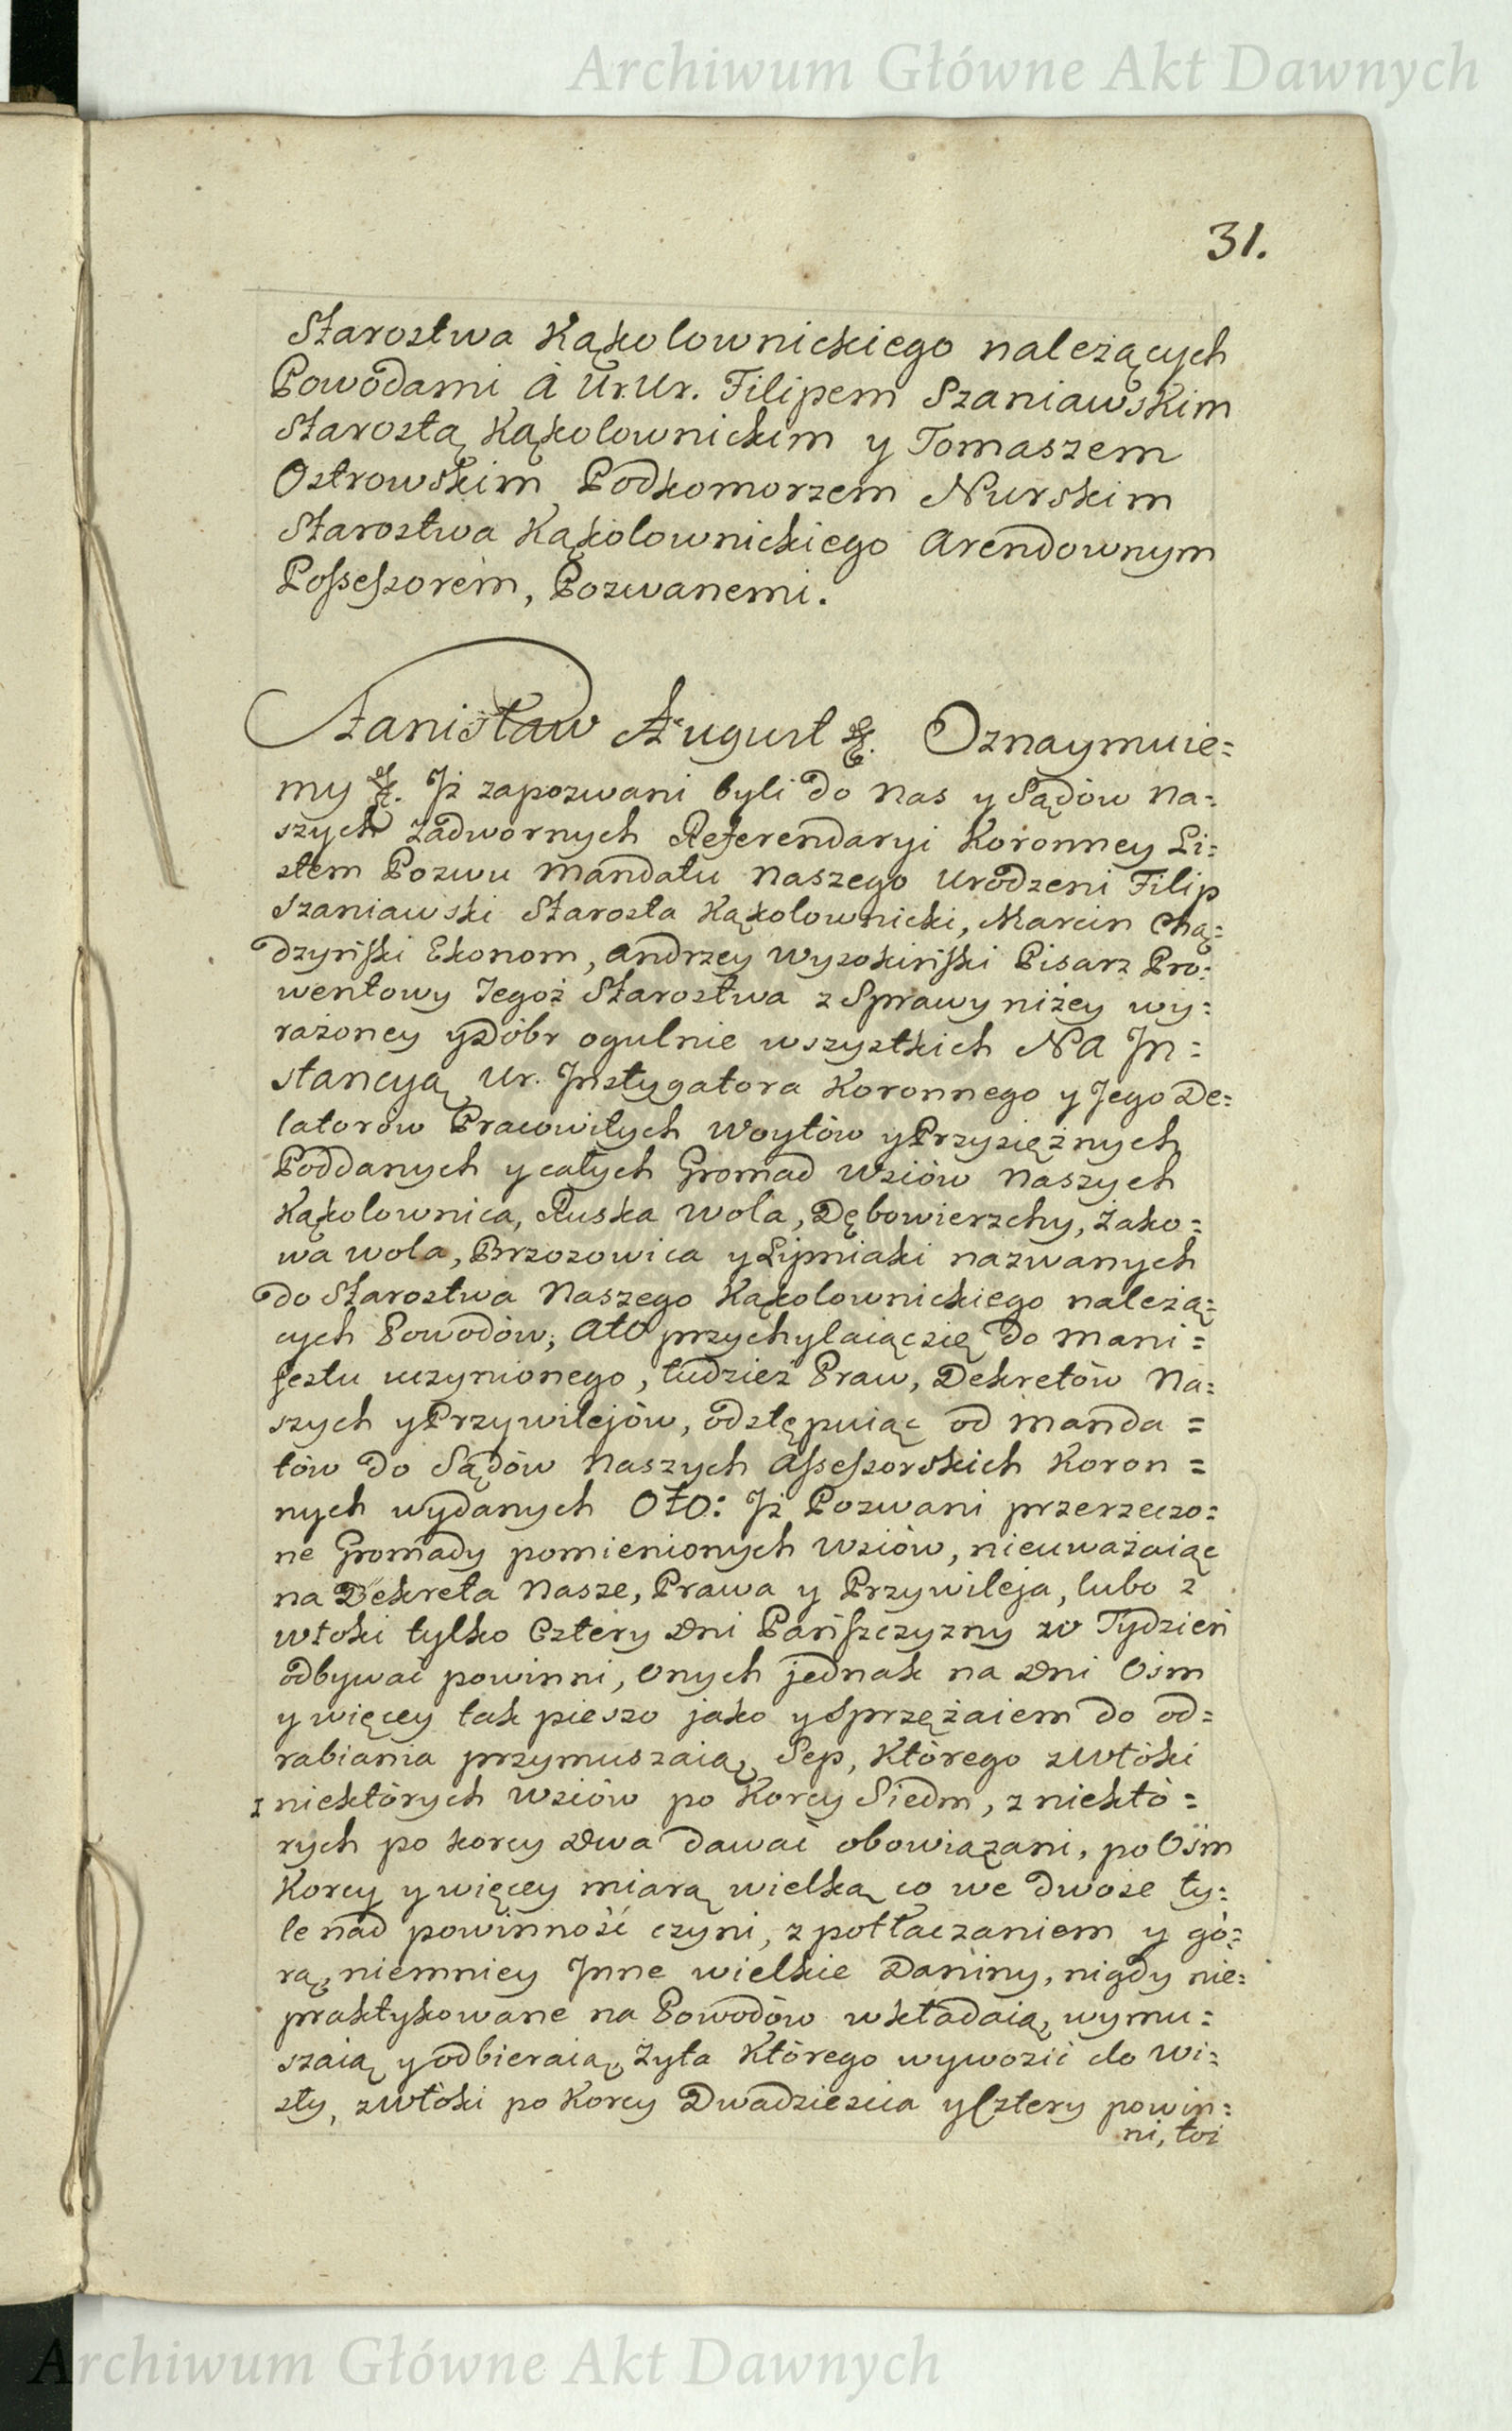 Archiwum Główne Akt Dawnych
31.
Starostwa Kąkolownickiego należących
Powodami A Ur. Ur. Filipem Szaniawskim
Starostą Kąkolownickim y Tomaszem
Ostrowskim Podkomorzem Nurskim
Starostwa Kąkolownickiego Arendownym
Possessorem, Pozwanemi.
Stanisław August &. Oznaymuie=
my &. Jż zapozwani byli do Nas y Sądów Na=
szych Zadwornych Referendaryi Koronney Li=
stem Pozwu Mandatu Naszego Urodzeni Filip
Szaniawski Starosta Kąkolownicki, Marcin Chą=
dzyński Ekonom, Andrzey Wysokiński Pisarz Pro=
wentowy Tegoż Starostwa z Sprawy niżey wy=
rażoney y Dóbr ogulnie wszystkich NA Jn=
stancyą Ur. Jnstygatora Koronnego y Jego De=
latorów Pracowitych Woytów y Przysiężnych
Poddanych y całych Gromad Wsiów Naszych
Kąkolownica, Ruska Wola, Dębowierzchy, Żako=
wa wola, Brzozowica y Lipniaki nazwanych
do Starostwa Naszego Kąkolownickiego należą=
cych Powodów; Ato przychylaiąc się do Mani=
festu uczynionego, tudzież Praw, Dekretów Na=
szych y Przywilejów, odstępuiąc od Manda=
tów do Sądów Naszych Assessorskich Koron=
nych wydanych Oto: Jż Pozwani przerzeczo=
ne Gromady pomienionych Wsiów, nieuważaiąc
na Dekreta Nasze, Prawa y Przywileja, lubo z
włoki tylko Cztery Dni Pańszczyzny w Tydzień
odbywać powinni, Onych jednak na Dni Ośm
y więcey tak pieszo jako y Sprzężaiem do od=
rabiania przymuszaią, Sep, Którego z Włóki
z niektórych Wsiów po Korcy Siedm, z niektó=
rych po korcy Dwa dawać obowiązani, po Ośm
Korcy y więcey miarą wielką co we dwoie ty=
le nad powinność czyni, z potłaczaniem y gó=
rą, niemniey Jnne wielkie Daniny, nigdy nie=
praktykowane na Powodów wkładaią, wymu=
szaią y odbieraią, Żyta Którego wywozić do Wi=
sły, z Włóki po Korcy Dwadziescia y Cztery powin=
ni, toż
Archiwum Główne Akt Dawnych